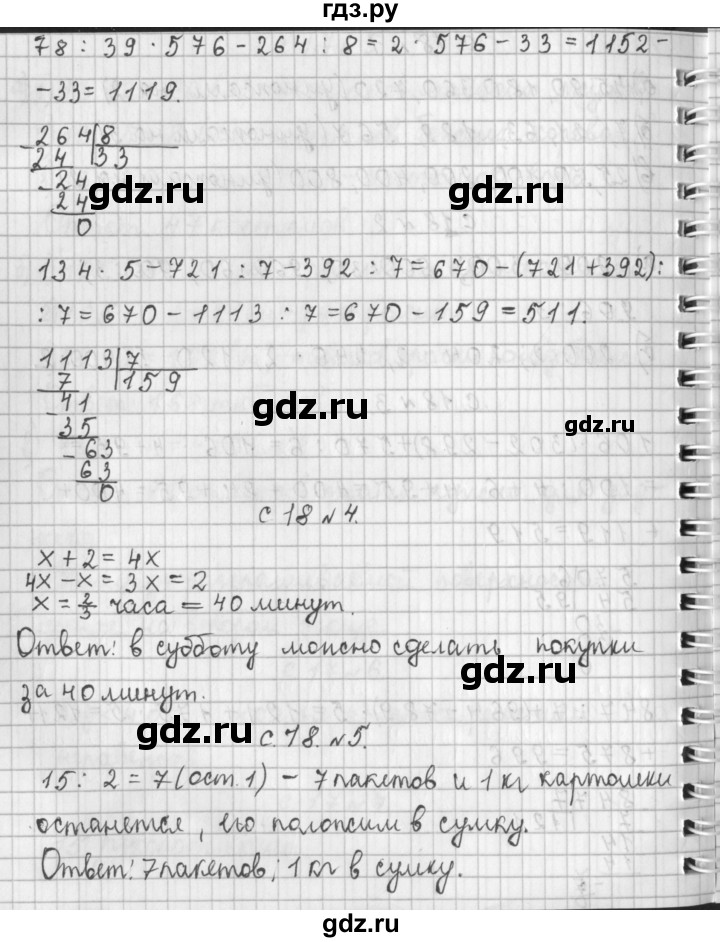 гдз.ру
78 : 39 · 576 - 264 : 8 = 2 · 576 - 33 = 1152 -
- 33 = 1119.
264 | 8
24 | 33
- 24
24
0
gdz.ru
gdz.ru
134 · 5 - 721 : 7 - 392 : 7 = 670 - (721 + 392) :
: 7 = 670 - 1113 : 7 = 670 - 159 = 511.
1113 | 7
7 | 159
- 41
35
- 63
63
0
gdz.ru
gdz.ru
с 18 № 4.
x + 2 = 4x
4x - x = 3x = 2
x = 2/3 часа = 40 минут.
Ответ: в субботу можно сделать покупки
за 40 минут.
gdz.ru
gdz.ru
с. 18. № 5.
15 : 2 = 7 (ост. 1) - 7 пакетов и 1 кг картошки
останется, его положим в сумку.
Ответ: 7 пакетов; 1 кг в сумку.
gdz.ru
gdz.ru